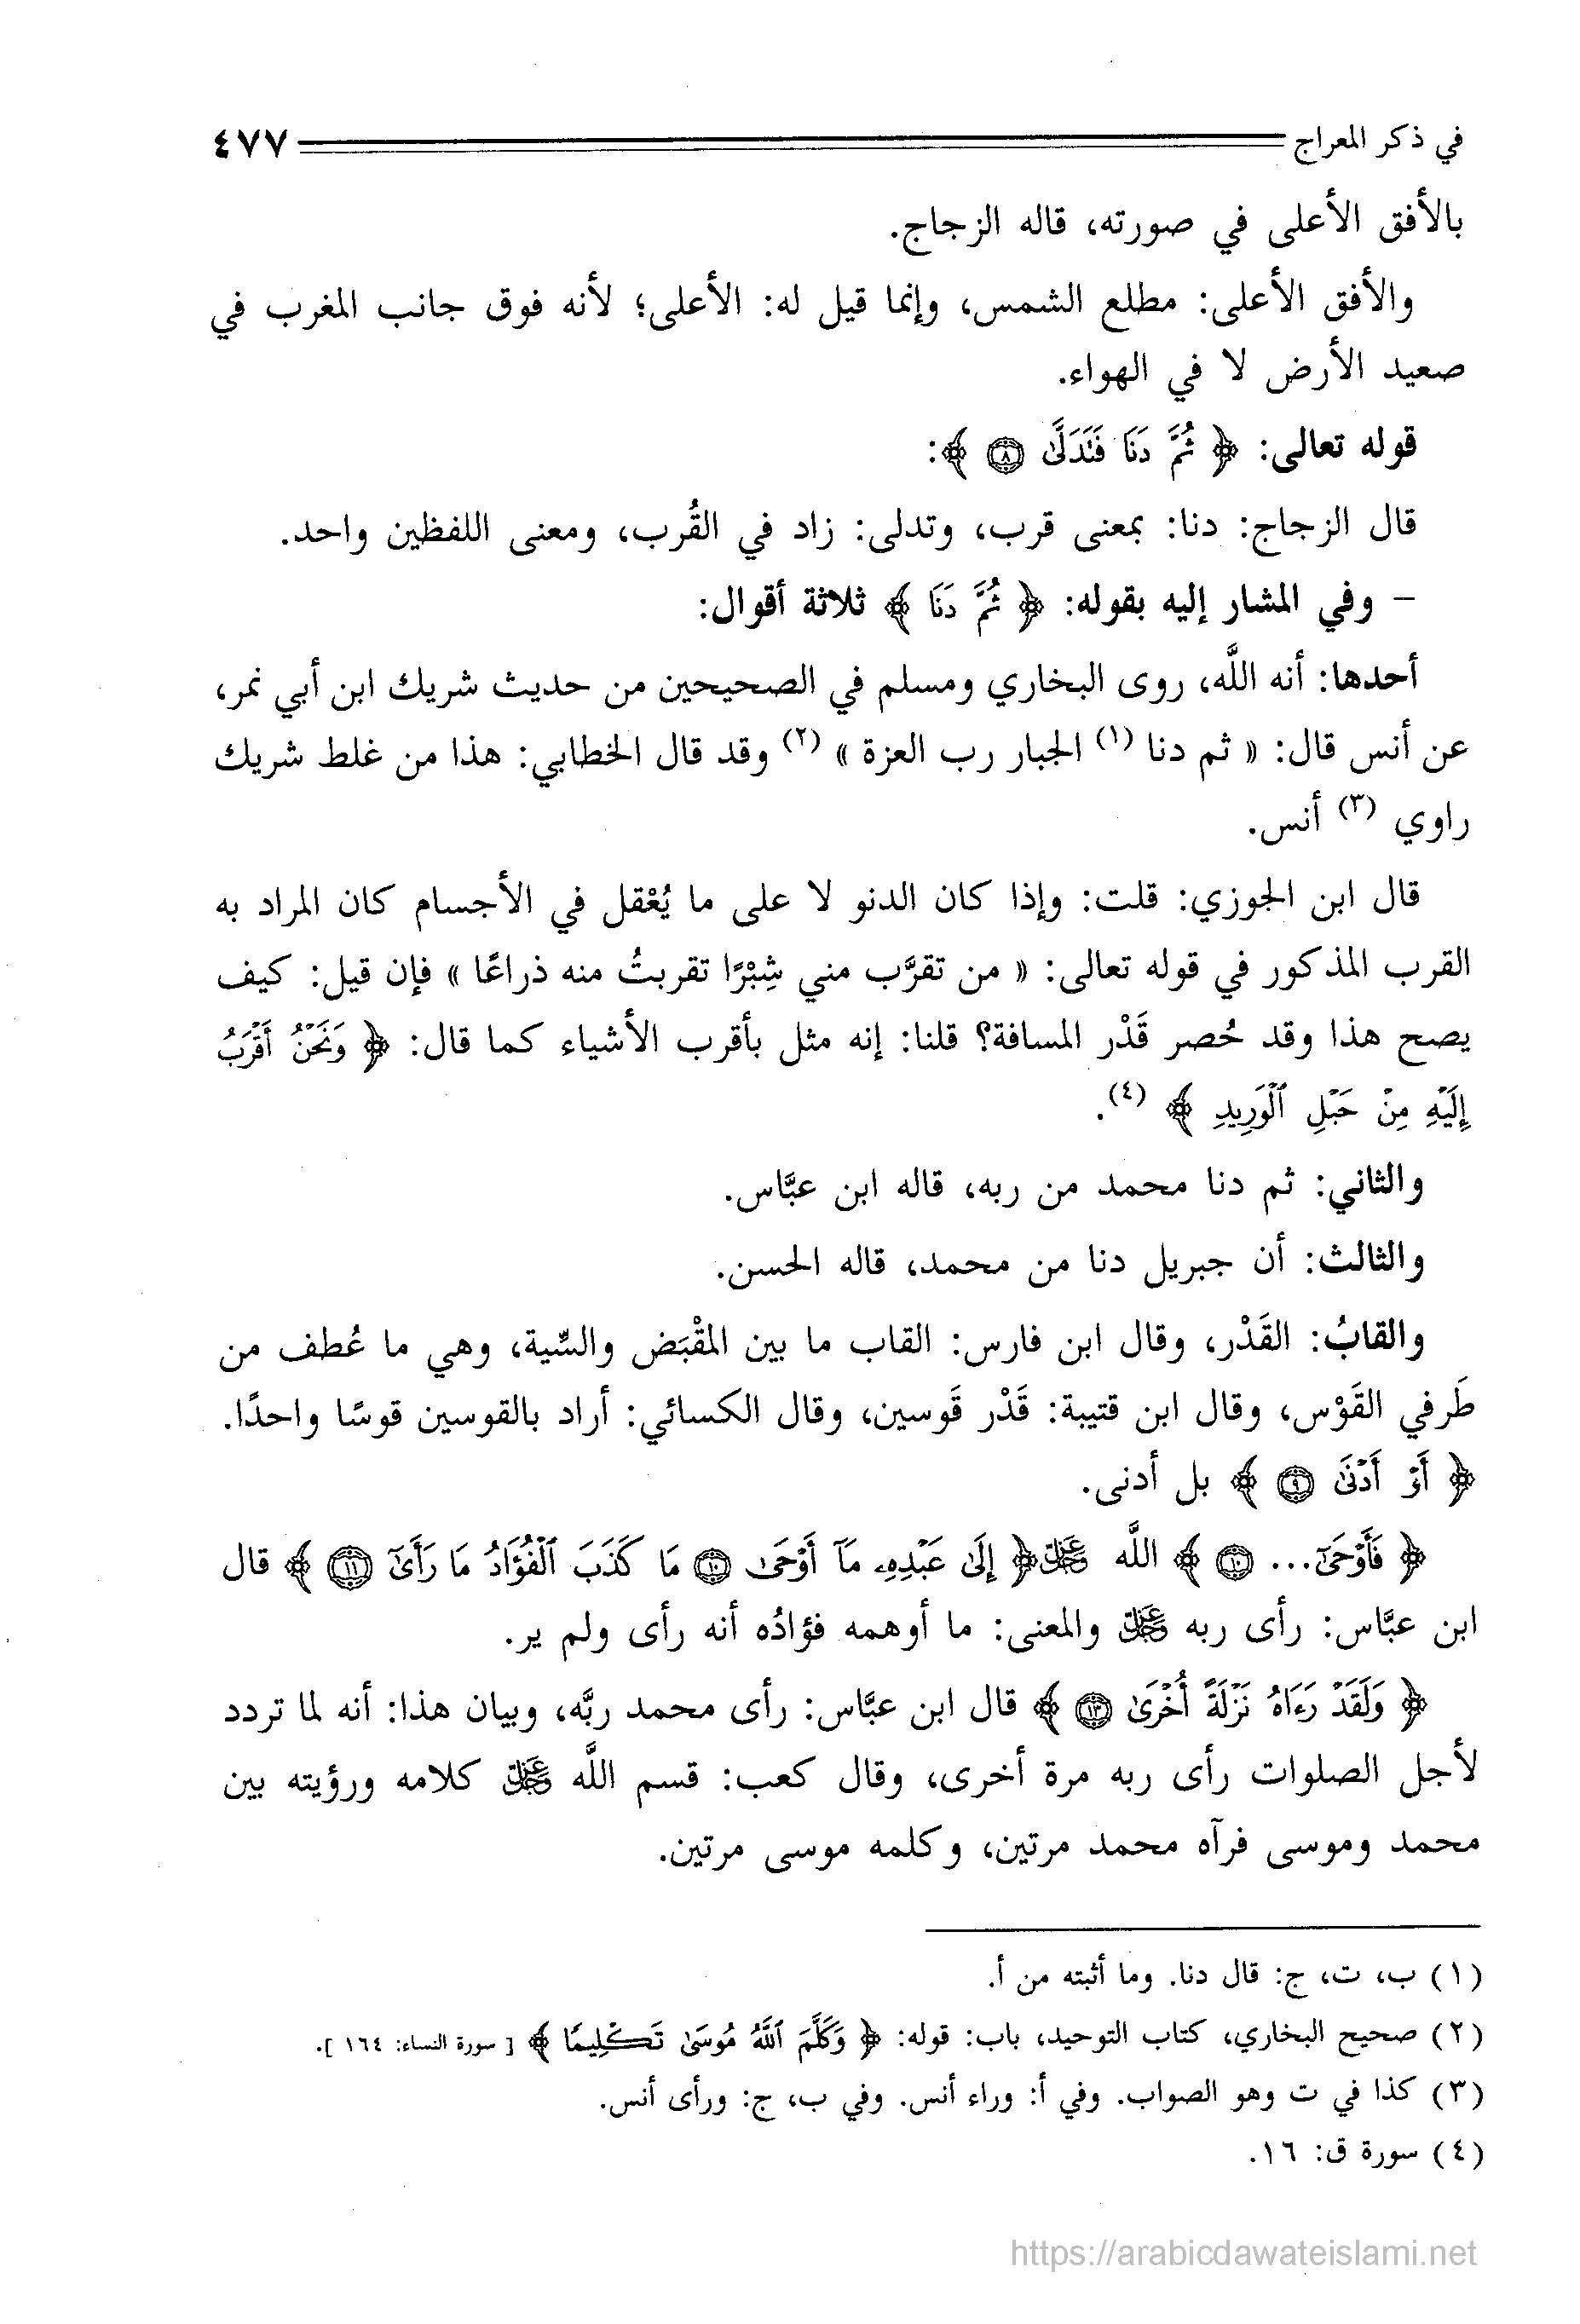 في ذكر المعراج ٤٧٧
بالأفق الأعلى في صورته، قاله الزجاج.
والأفق الأعلى: مطلع الشمس، وإنما قيل له: الأعلى؛ لأنه فوق جانب المغرب في
صعيد الأرض لا في الهواء.
قوله تعالى: ﴿ ثُمَّ دَنَا فَتَدَلَّىٰ ۝٨ ﴾:
قال الزجاج: دنا: بمعنى قرب، وتدلى: زاد في القُرب، ومعنى اللفظين واحد.
- وفي المشار إليه بقوله: ﴿ ثُمَّ دَنَا ﴾ ثلاثة أقوال:
أحدها: أنه اللَّه، روى البخاري ومسلم في الصحيحين من حديث شريك ابن أبي نمر،
عن أنس قال: « ثم دنا (١) الجبار رب العزة » (٢) وقد قال الخطابي: هذا من غلط شريك
راوي (٣) أنس.
قال ابن الجوزي: قلت: وإذا كان الدنو لا على ما يُعْقل في الأجسام كان المراد به
القرب المذكور في قوله تعالى: « من تقرَّب مني شِبْرًا تقربتُ منه ذراعًا » فإن قيل: كيف
يصح هذا وقد حُصر قَدْر المسافة؟ قلنا: إنه مثل بأقرب الأشياء كما قال: ﴿ وَنَحْنُ أَقْرَبُ
إِلَيْهِ مِنْ حَبْلِ ٱلْوَرِيدِ ﴾ (٤).
والثاني: ثم دنا محمد من ربه، قاله ابن عبَّاس.
والثالث: أن جبريل دنا من محمد، قاله الحسن.
والقابُ: القَدْر، وقال ابن فارس: القاب ما بين المقْبَض والسِّية، وهي ما عُطف من
طَرفي القَوْس، وقال ابن قتيبة: قَدْر قَوسين، وقال الكسائي: أراد بالقوسين قوسًا واحدًا.
﴿ أَوْ أَدْنَىٰ ۝٩ ﴾ بل أدنى.
﴿ فَأَوْحَىٰٓ... ۝١٠ ﴾ اللَّه ﷿ ﴿ إِلَىٰ عَبْدِهِۦ مَآ أَوْحَىٰ ۝١٠ مَا كَذَبَ ٱلْفُؤَادُ مَا رَأَىٰٓ ۝١١ ﴾ قال
ابن عبَّاس: رأى ربه ﷿ والمعنى: ما أوهمه فؤادُه أنه رأى ولم ير.
﴿ وَلَقَدْ رَءَاهُ نَزْلَةً أُخْرَىٰ ۝١٣ ﴾ قال ابن عبَّاس: رأى محمد ربَّه، وبيان هذا: أنه لما تردد
لأجل الصلوات رأى ربه مرة أخرى، وقال كعب: قسم اللَّه ﷿ كلامه ورؤيته بين
محمد وموسى فرآه محمد مرتين، وكلمه موسى مرتين.
(١) ب، ت، ج: قال دنا. وما أثبته من أ.
(٢) صحيح البخاري، كتاب التوحيد، باب: قوله: ﴿ وَكَلَّمَ ٱللَّهُ مُوسَىٰ تَكْلِيمًا ﴾ [ سورة النساء: ١٦٤ ].
(٣) كذا في ت وهو الصواب. وفي أ: وراء أنس. وفي ب، ج: ورأى أنس.
(٤) سورة ق: ١٦.
https://arabicdawateislami.net